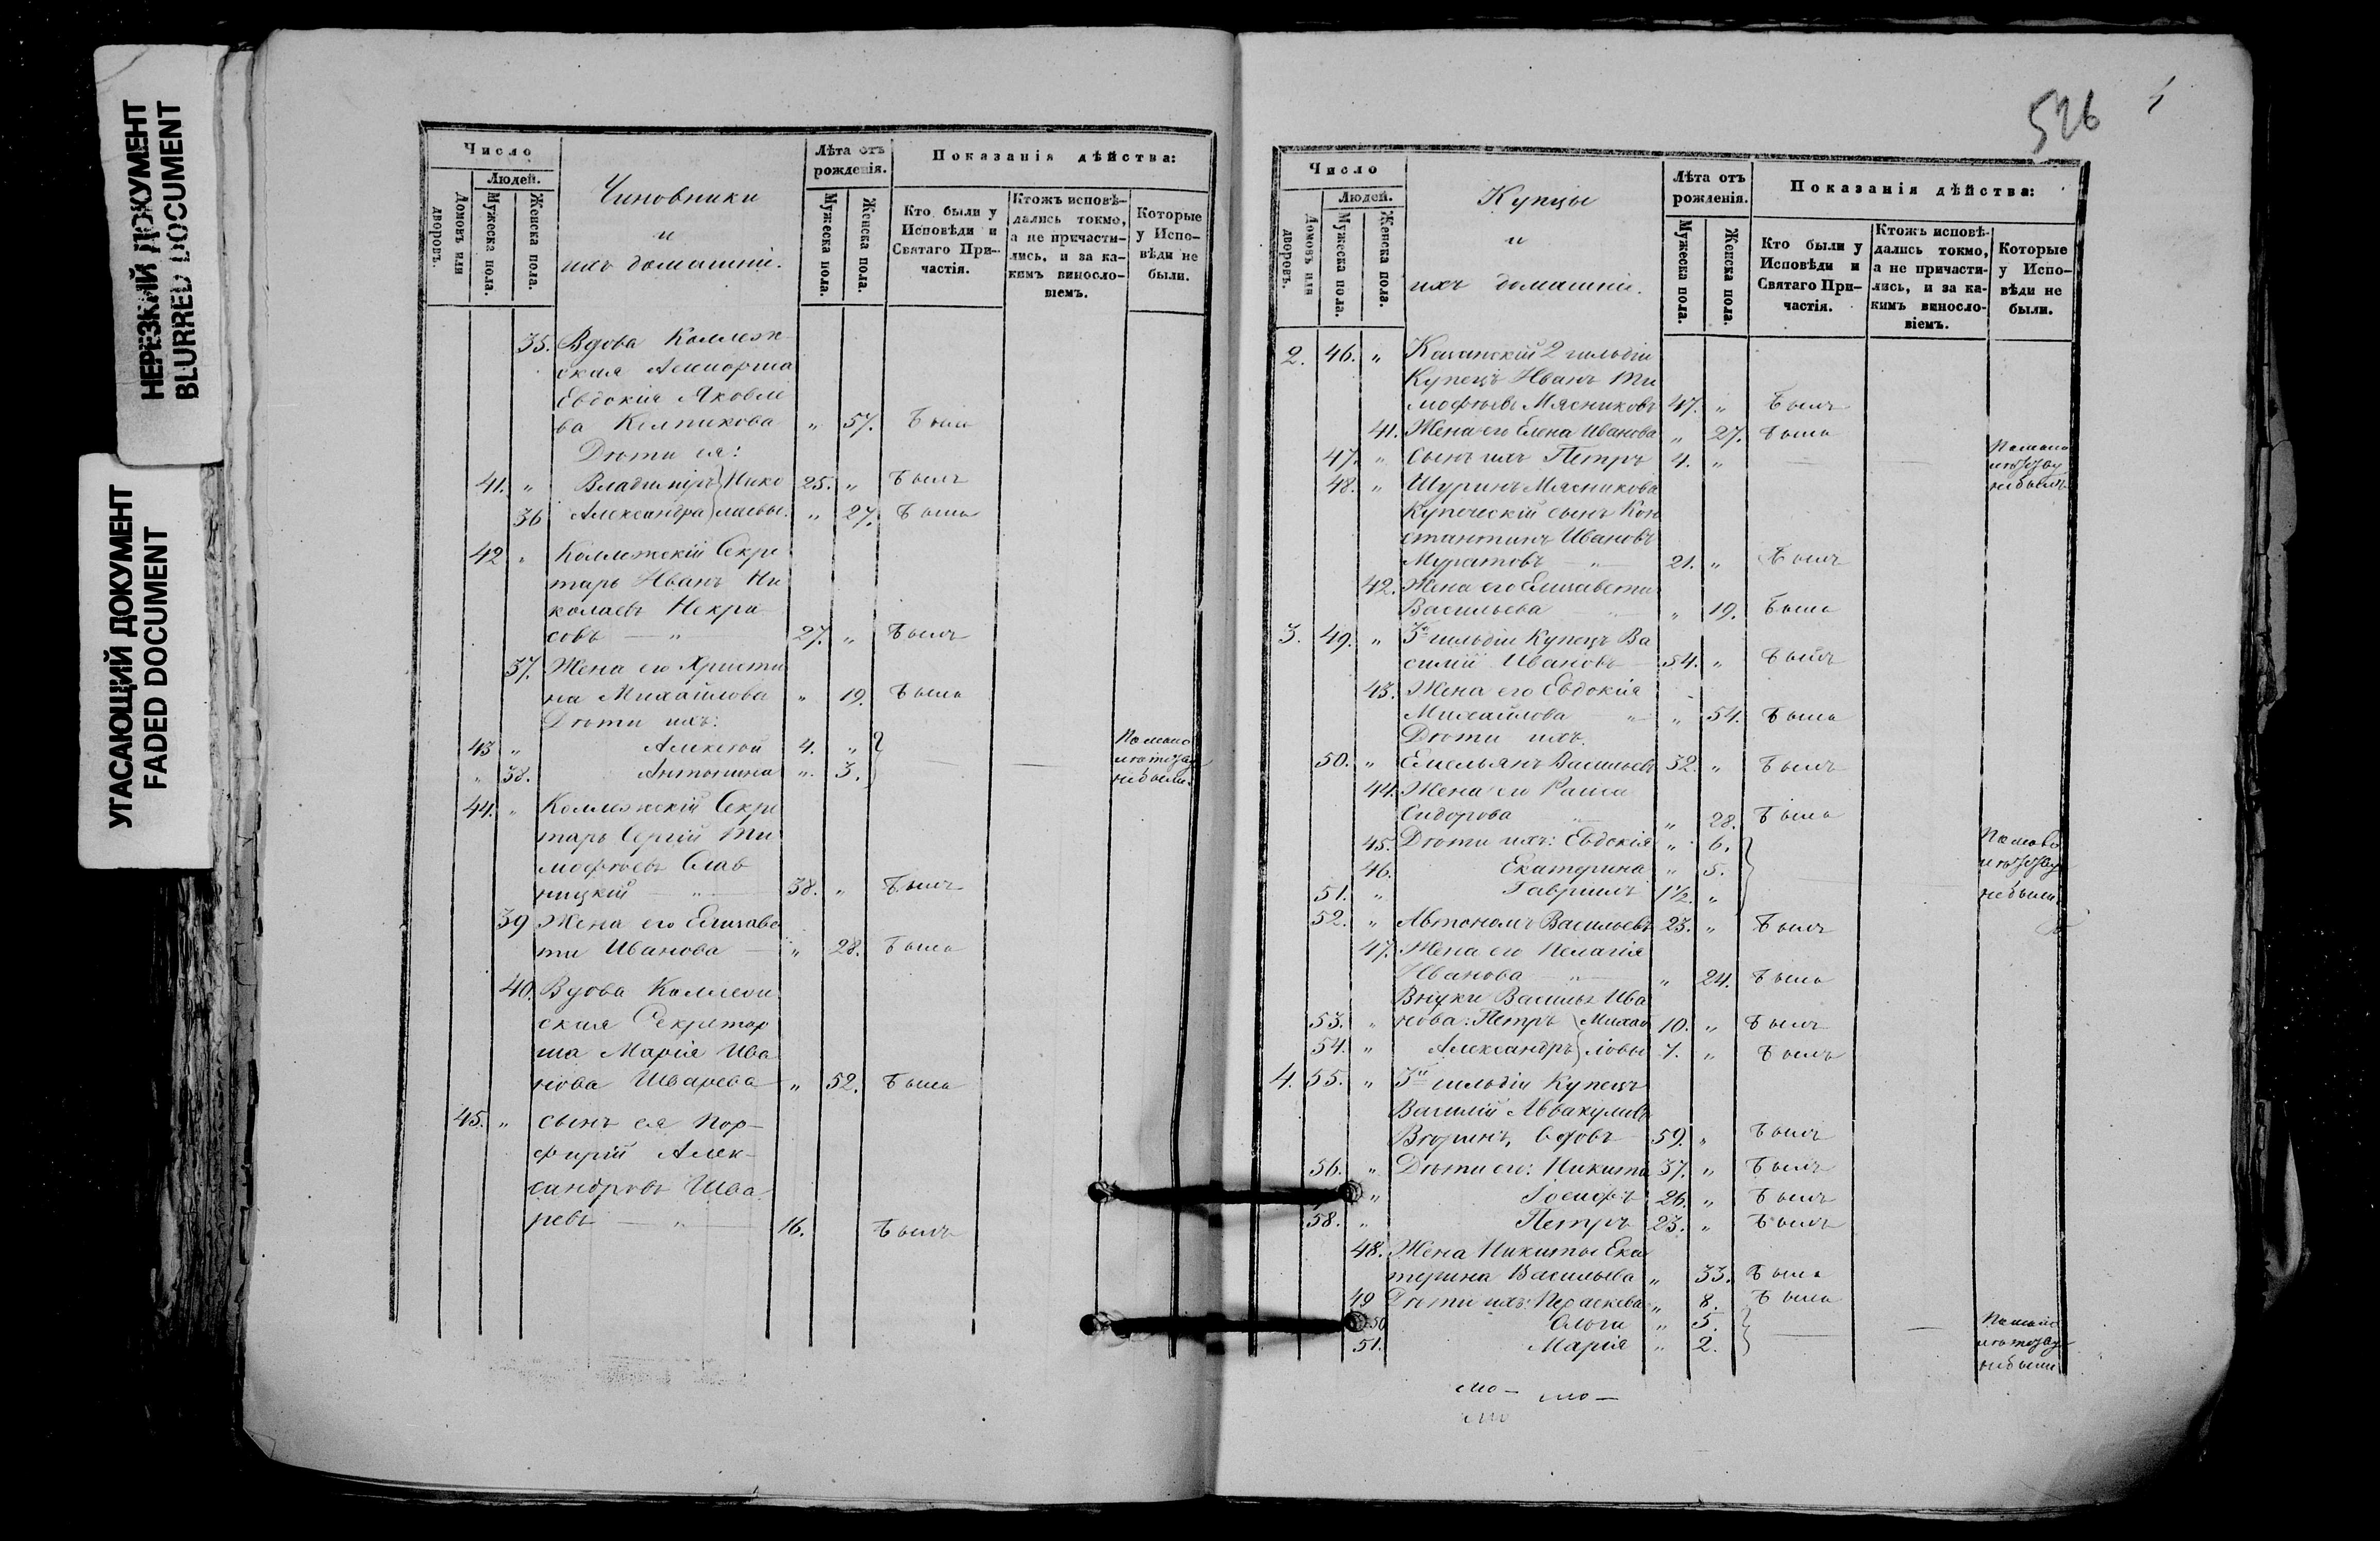 НЕРЕЗКИЙ ДОКУМЕНТ
BLURRED DOCUMENT
УГАСАЮЩИЙ ДОКУМЕНТ
FADED DOCUMENT
Число
Людей.
Домовъ или дворовъ.
Мужеска пола.
Женска пола.
Чиновники
и
ихъ домашніе.
Лѣта отъ рожденія.
Мужеска пола.
Женска пола.
Показанія дѣйства:
Кто были у Исповѣди и Святаго При-
частія.
Ктожъ исповѣ-
дались токмо,
а не причасти-
лись, и за ка-
кимъ винсло-
віемъ.
Которые
у Испо-
вѣди не
были.
35. Вдова Коллеж
ская Ассиорша
Евдокія Яковле
ва " 57. Была
Дѣти ея:
41. " Владиміръ Нико 25. " Былъ
36 Александра лаевы. " 27. Была
42 " Коллежскій Секре
тарь Иванъ Ни
колаевъ Некра
совъ — " — 27. " Былъ
37. Жена его Христи
на Михайлова " 19. Была
Дѣти ихъ:
43 " Алексѣй 4. " По мало
" 38. Антонина " 3. — — лѣтству
не были.
44. " Коллежскій Секре
тарь Сергій Ти
мофѣевъ Слав
ницкій — " — 38. " Былъ
39 Жена его Елизаве
та Иванова — " 28. Была
40. Вдова Коллеж
ская Секретар
ша Марія Ива
нова Шварева " 52. Была
45. " сынъ ея Пор-
фирій Алек-
сандровъ Шва
ревъ — " — 16. Былъ
526
Число
Людей.
Домовъ или дворовъ.
Мужеска пола.
Женска пола.
Купцы
и
ихъ домашніе.
Лѣта отъ рожденія.
Мужеска пола.
Женска пола.
Показанія дѣйства:
Кто были у
Исповѣди и
Святаго При-
частія.
Ктожъ исповѣ-
дались токмо,
а не причасти-
лись, и за ка-
кимъ винсло-
віемъ.
Которые
у Испо-
вѣди не
были.
2. 46. " Казанскій 2 гильдіи
Купецъ Иванъ Ти
мофѣевъ Мясниковъ 47. " Былъ
41. Жена его Елена Иванова " 27. Была
47. " Сынъ ихъ Петръ 4. " — — По мало
лѣтству
не былъ
48. " Шуринъ Мясникова
Купеческій сынъ Кон
стантинъ Ивановъ
Муратовъ — " — 21. " Былъ
42. Жена его Елизавета
Васильева " 19. Была
3. 49. " 3й гильдіи Купецъ Ва
силій Ивановъ — 54. " Былъ
43. Жена его Евдокія
Михайлова — " " 54. Была
Дѣти ихъ.
50. " Емельянъ Васильевъ 32. " Былъ
44. Жена его Раиса
Сидорова " " 28. Была
45. Дѣти ихъ: Евдокія " 6. По мало
46. Екатерина " 5. лѣтству
51. " Гавріилъ 1½. " не были.
52. " Автономъ Васильевъ 23. " Былъ
47. Жена его Пелагія
Иванова — " — " 24. Была
Внуки Василья Ива
53. " нова: Петръ Михай 10. " Былъ
54. " Александръ ловы 7. " Былъ
4. 55. " 3й гильдіи Купецъ
Василій Аввакумовъ
вдовъ 59. " Былъ
56. " Дѣти его: Никита 37. " Былъ
" Іосифъ 26. " Былъ
58. " Петръ 23. " Былъ
48. Жена Никиты Ека
терина Васильева " 33. Была
49 Дѣти ихъ: Параскева " 8. Была
50 Ольга " 5. По мало
51. Марія " 2. — — лѣтству
не были